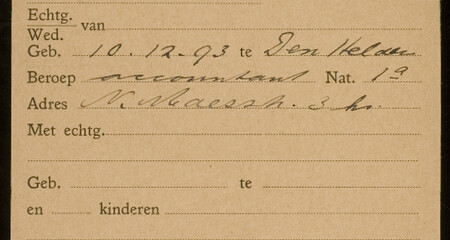 Echtg.
van
Wed.
Geb. 10.12.93 te Den Helder
Beroep accountant Nat. 1a
Adres N. Maesstr. 3 hs.
Met echtg.
Geb. te
en kinderen